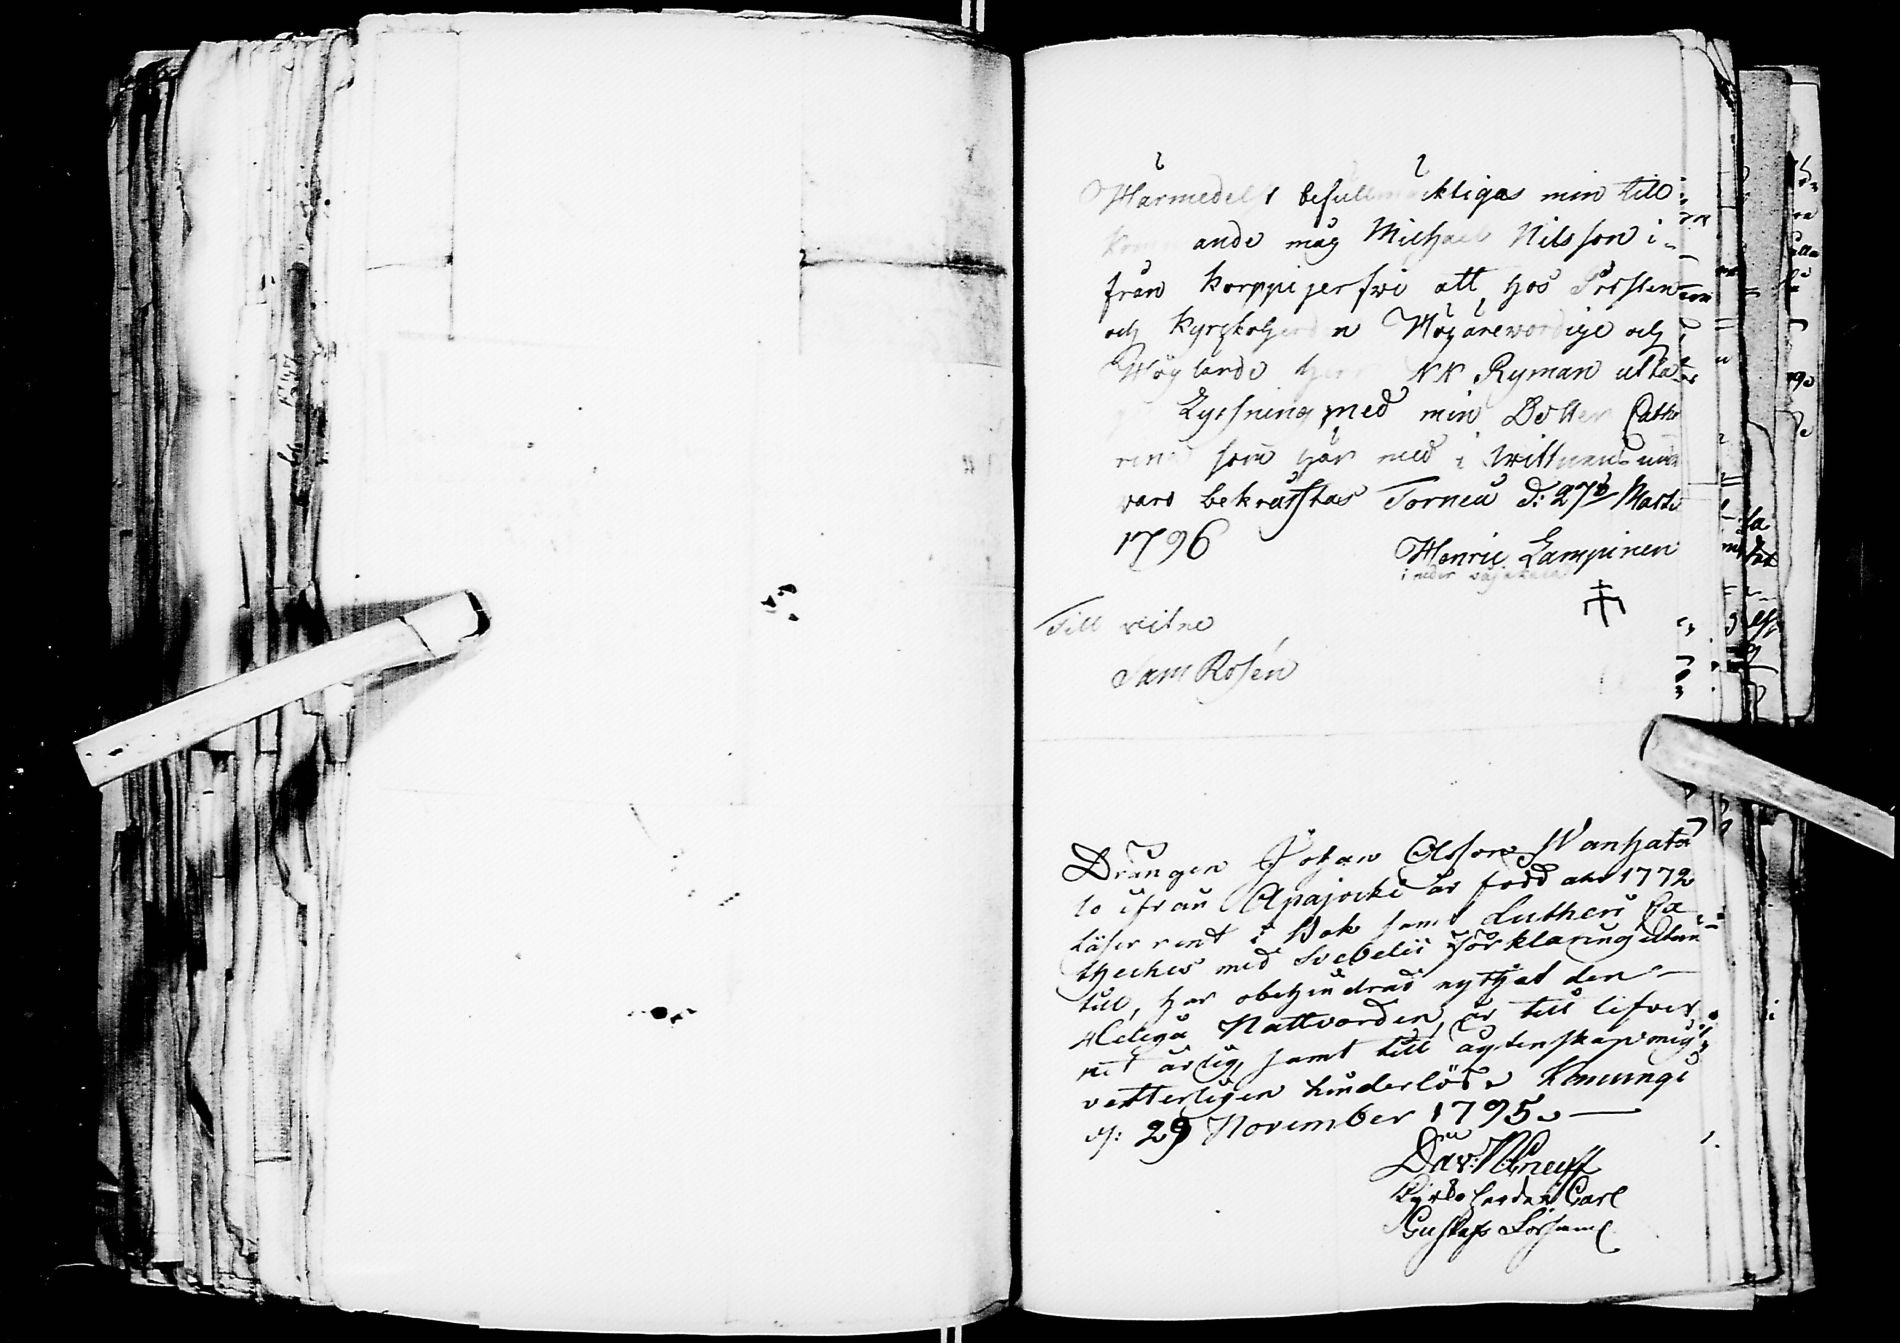 Härmedelst befullmäcktigas min till
kommande måg Michael Nilsson i-
från Korppijerfwi att hos Probsten
och Kyrckoherden Högärewördige och
Höglärde Herr NN Ryman utta
Lyssning med min Dotter Catha
rina som här med i wittnens när
varo bekräfftas Torneå d: 27de Martii
1796
Henric Lampinen
i neder
Till vitne
Sam Rosén
Drängen Johan Olsson Wanhata
lo ifrån Apajocki är född ahr 1772
Läser rent i Bok samt Lutheri Ca
theches med Svebelii Förklaring utan
till, har obehindrad nythjat den
Heliga Nattvarden, är till lefver
net ärlig samt till ägtenskap mig
vetterligen hinderlös. Kenuungi
d: 29 November 1795.
Dav: Wneiff
Kyrko herde i Carl
Gustafs Församl